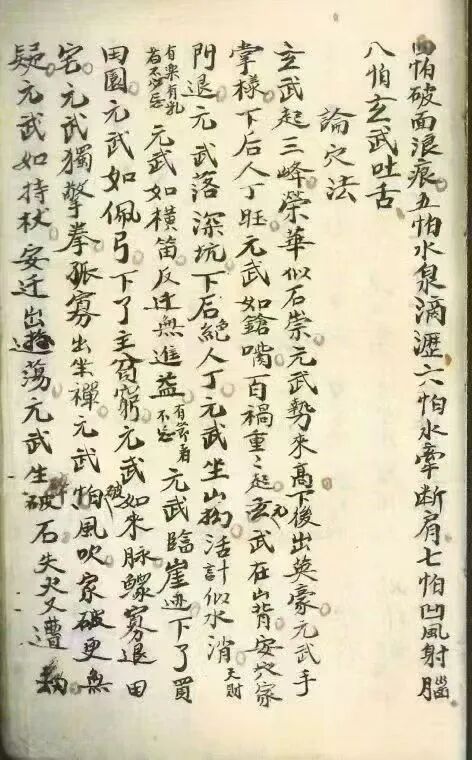 四怕破面浪痕五怕水泉滴瀝六怕水牽断肩七怕凹風射腦
八怕玄武吐舌
論穴法
玄武起三峰榮華似石崇元武勢來髙下後出英豪元武手
掌樣下后人丁旺元武如鎗嘴百禍重〻起玄元武在山背安穴家
門退元武落深坑下后絕人丁元武坐山拗活計似水消
有樂有乳
若不必忌元武如橫笛反迁無進益有若看
不忌元武臨崖迹下了買
田園元武如佩弓下了主貧窮元武如來脉鰥寡退田
宅元武獨擎拳孤寡出坐禪元武怕風吹家破更無
疑元武如持杖安迁出逃蕩元武生破石失火又遭